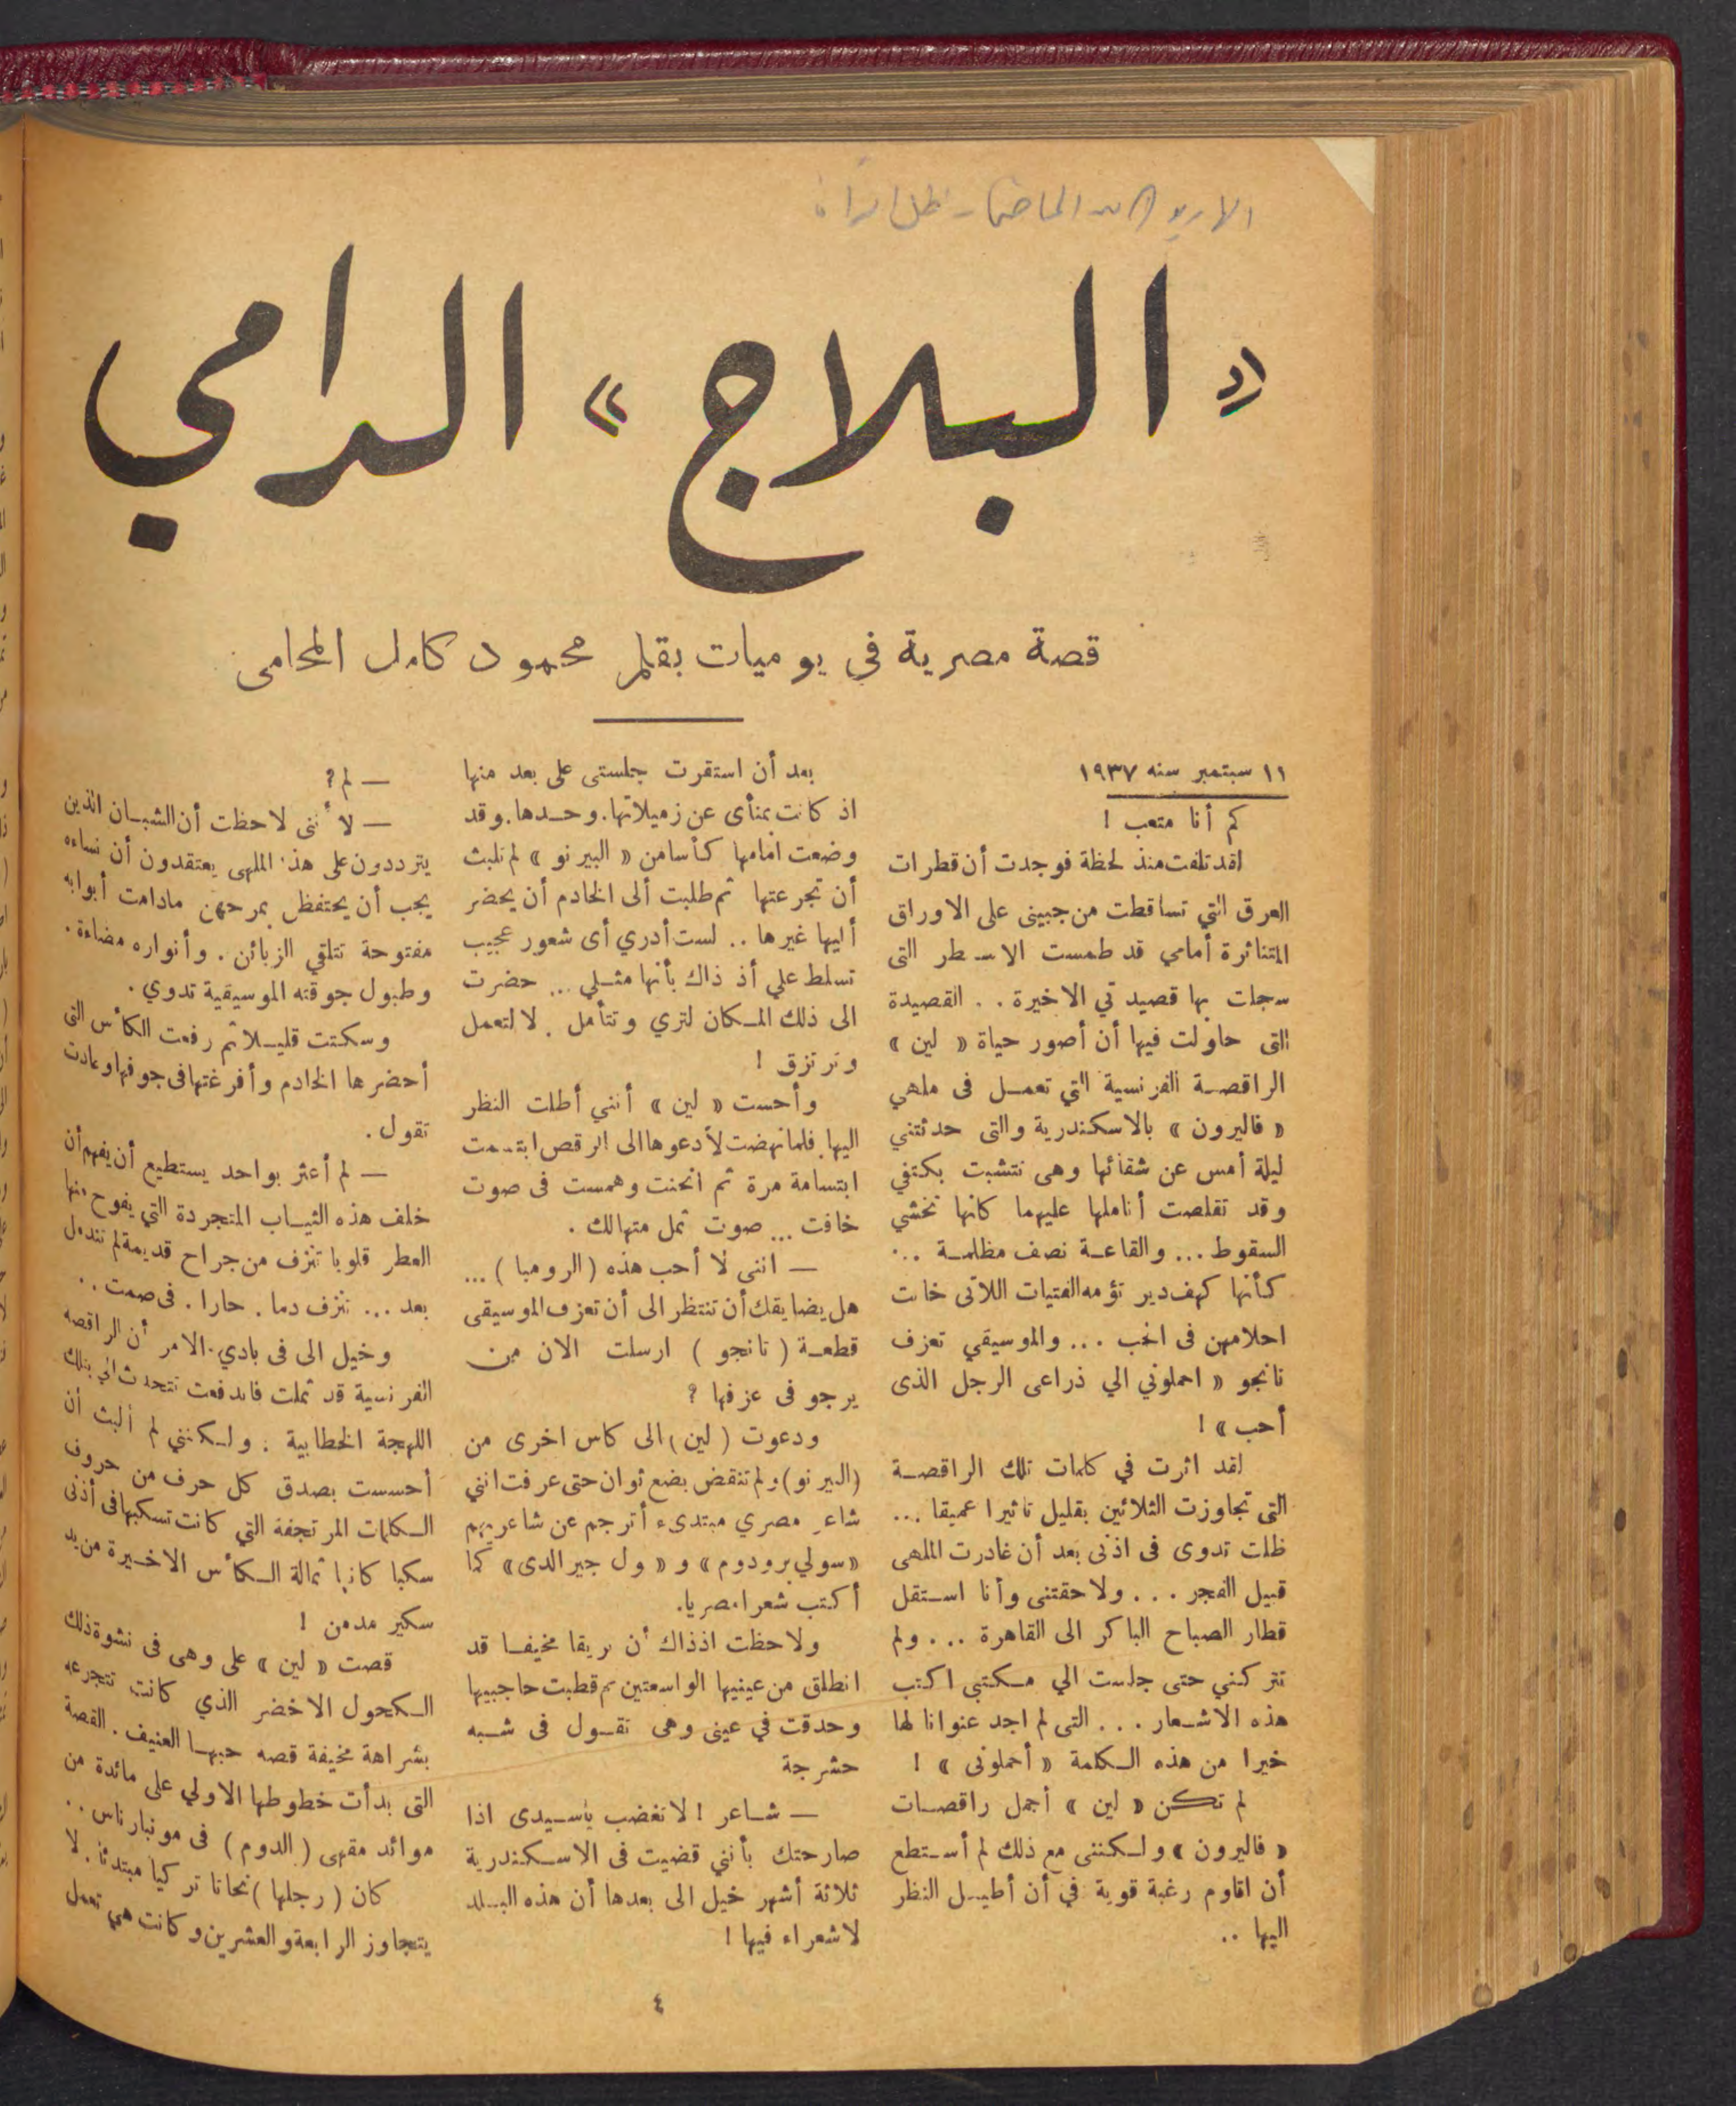 « البلاج » الدامي
قصة مصرية في يوميات بقلم محمود كامل المحامى
١١ سبتمبر سنه ١٩٣٧
كم أنا متعب !
لقد تلفت منذ لحظة فوجدت أن قطرات
العرق التي تساقطت من جبينى على الاوراق
المتناثرة أمامي قد طمست الاسطر التى
سجلت بها قصيدتي الاخيرة . . القصيدة
التى حاولت فيها أن أصور حياة « لين »
الراقصة الفرنسية التي تعمل فى ملهي
« فاليرون » بالاسكندرية والتى حدثتني
ليلة أمس عن شقائها وهى تتشبت بكتفي
وقد تقلصت أناملها عليهما كانها تخشي
السقوط ... والقاعة نصف مظلمة ...
كأنها كهف دير تؤمه الفتيات اللاتى خابت
احلامهن فى الحب ... والموسيقي تعزف
تانجو « احملوني الي ذراعى الرجل الذى
أحب » !
لقد اثرت في كلمات تلك الراقصة
التى تجاوزت الثلاثين بقليل تاثيرا عميقا ...
ظلت تدوى فى اذنى بعد أن غادرت الملهى
قبيل الفجر . . . ولاحقتنى وأنا استقل
قطار الصباح الباكر الى القاهرة ... ولم
تتركني حتى جلست الي مكتبى اكتب
هذه الاشعار . . . التى لم اجد عنوانا لها
خيرا من هذه الكلمة « أحملونى » !
لم تكن « لين » أجمل راقصات
« فاليرون » ولكننى مع ذلك لم أستطع
أن اقاوم رغبة قوية في أن أطيل النظر
اليها ..
بعد أن استقرت جلستى على بعد منها
اذ كانت بمنأى عن زميلاتها. وحدها. وقد
وضعت امامها كأسا من « البيرنو » لم تلبث
أن تجرعتها ثم طلبت ألى الخادم أن يحضر
أليها غيرها .. لست أدري أى شعور عجيب
تسلط علي أذ ذاك بأنها مثلي ... حضرت
الى ذلك المكان لتري وتتأمل . لا لتعمل
وترتزق !
وأحست « لين » أنني أطلت النظر
اليها. فلما نهضت لأدعوها الى الرقص ابتسمت
ابتسامة مرة ثم انحنت وهمست فى صوت
خافت ... صوت ثمل متهالك .
— انني لا أحب هذه ( الرومبا ) ...
هل يضايقك أن تنتظر الى أن تعزف الموسيقى
قطعة ( تانجو ) ارسلت الان من
يرجو فى عزفها ؟
ودعوت ( لين ) الى كاس اخرى من
( البيرنو ) ولم تنقض بضع ثوان حتى عرفت انني
شاعر مصري مبتدىء أترجم عن شاعريهم
« سولي برودوم » و « ول جيرالدى » كما
أكتب شعرا مصريا.
ولاحظت اذذاك أن بريقا مخيفا قد
انطلق من عينيها الواسعتين ثم قطبت حاجبيها
وحدقت في عينى وهى تقول فى شبه
حشرجة
— شاعر ! لا تغضب ياسيدى اذا
صارحتك بأنني قضيت فى الاسكندرية
ثلاثة أشهر خيل الى بعدها أن هذه البلد
لاشعراء فيها !
— لم ؟
— لأننى لاحظت أن الشبان الذين
يترددون على هذا الملهى يعتقدون أن نساءه
يجب أن يحتفظن بمرحهن مادامت أبوابه
مفتوحة تتلقي الزبائن . وأنواره مضاءة .
وطبول جوقته الموسيقية تدوي .
وسكتت قليلا ثم رفعت الكأس التى
أحضرها الخادم وأفرغتها فى جوفها وعادت
تقول .
— لم أعثر بواحد يستطيع أن يفهم أن
خلف هذه الثياب المتجردة التي يفوح منها
العطر قلوبا تنزف من جراح قديمة لم تندمل
بعد ... تنزف دما . حارا . فى صمت ..
وخيل الى فى بادي الامر أن الراقصه
الفرنسية قد ثملت فاندفعت تتحدث الي بتلك
اللهجة الخطابية . ولكننى لم ألبث أن
أحسست بصدق كل حرف من حروف
الكلمات المرتجفة التي كانت تسكبها فى أذنى
سكبا كانها ثمالة الكأس الاخيرة من يد
سكير مدمن !
قصت « لين » على وهى فى نشوة ذلك
الكحول الاخضر الذي كانت تتجرعه
بشراهة مخيفة قصه حبها العنيف . القصة
التى بدأت خطوطها الاولي على مائدة من
موائد مقهى ( الدوم ) فى مونبارناس ..
كان ( رجلها ) نحاتا تركيا مبتدئا . لا
يتجاوز الرابعة والعشرين وكانت هي تعمل
٤